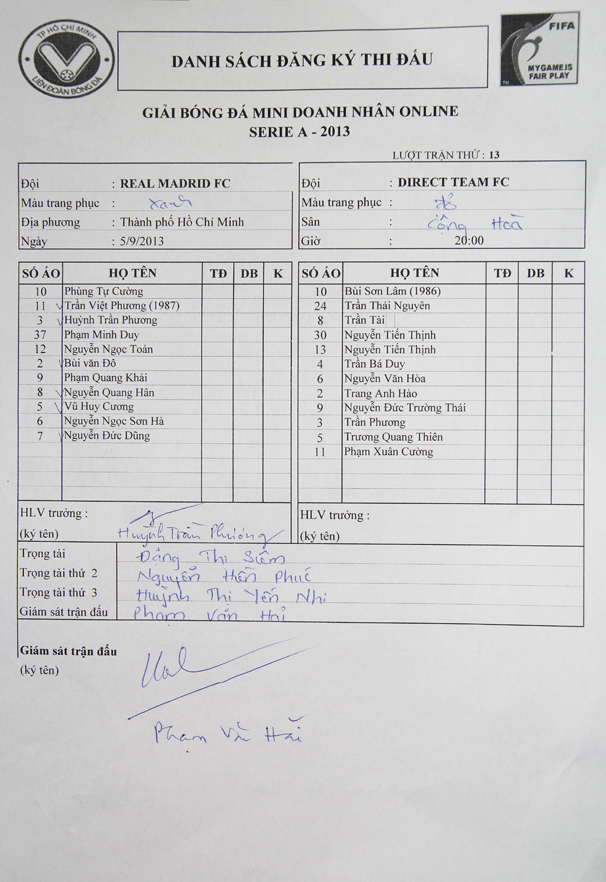 TP HỒ CHÍ MINH
LIÊN ĐOÀN BÓNG ĐÁ
DANH SÁCH ĐĂNG KÝ THI ĐẤU
FIFA
MY GAME IS
FAIR PLAY
GIẢI BÓNG ĐÁ MINI DOANH NHÂN ONLINE
SERIE A - 2013
LƯỢT TRẬN THỨ : 13
Đội : REAL MADRID FC
Màu trang phục : Xanh
Địa phương : Thành phố Hồ Chí Minh
Ngày : 5/9/2013
Đội : DIRECT TEAM FC
Màu trang phục : đỏ
Sân : Cộng Hoà
Giờ : 20:00
SỐ ÁO HỌ TÊN TĐ DB K
10 Phùng Tự Cường
11 Trần Việt Phương (1987)
3 Huỳnh Trần Phương
37 Phạm Minh Duy
12 Nguyễn Ngọc Toản
2 Bùi văn Đô
9 Phạm Quang Khải
8 Nguyễn Quang Hân
5 Vũ Huy Cương
6 Nguyễn Ngọc Sơn Hà
7 Nguyễn Đức Dũng
SỐ ÁO HỌ TÊN TĐ DB K
10 Bùi Sơn Lâm (1986)
24 Trần Thái Nguyên
8 Trần Tài
30 Nguyễn Tiến Thịnh
13 Nguyễn Tiến Thịnh
4 Trần Bá Duy
6 Nguyễn Văn Hòa
2 Trang Anh Hào
9 Nguyễn Đức Trường Thái
3 Trần Phương
5 Trương Quang Thiên
11 Phạm Xuân Cường
HLV trưởng :
(ký tên) Huỳnh Trần Phương
HLV trưởng :
(ký tên)
Trọng tài Đặng Thị
Trọng tài thứ 2 Nguyễn Hiền Phúc
Trọng tài thứ 3 Huỳnh Thị Yến Nhi
Giám sát trận đấu Phạm Văn Hải
Giám sát trận đấu
(ký tên)
Phạm Văn Hải